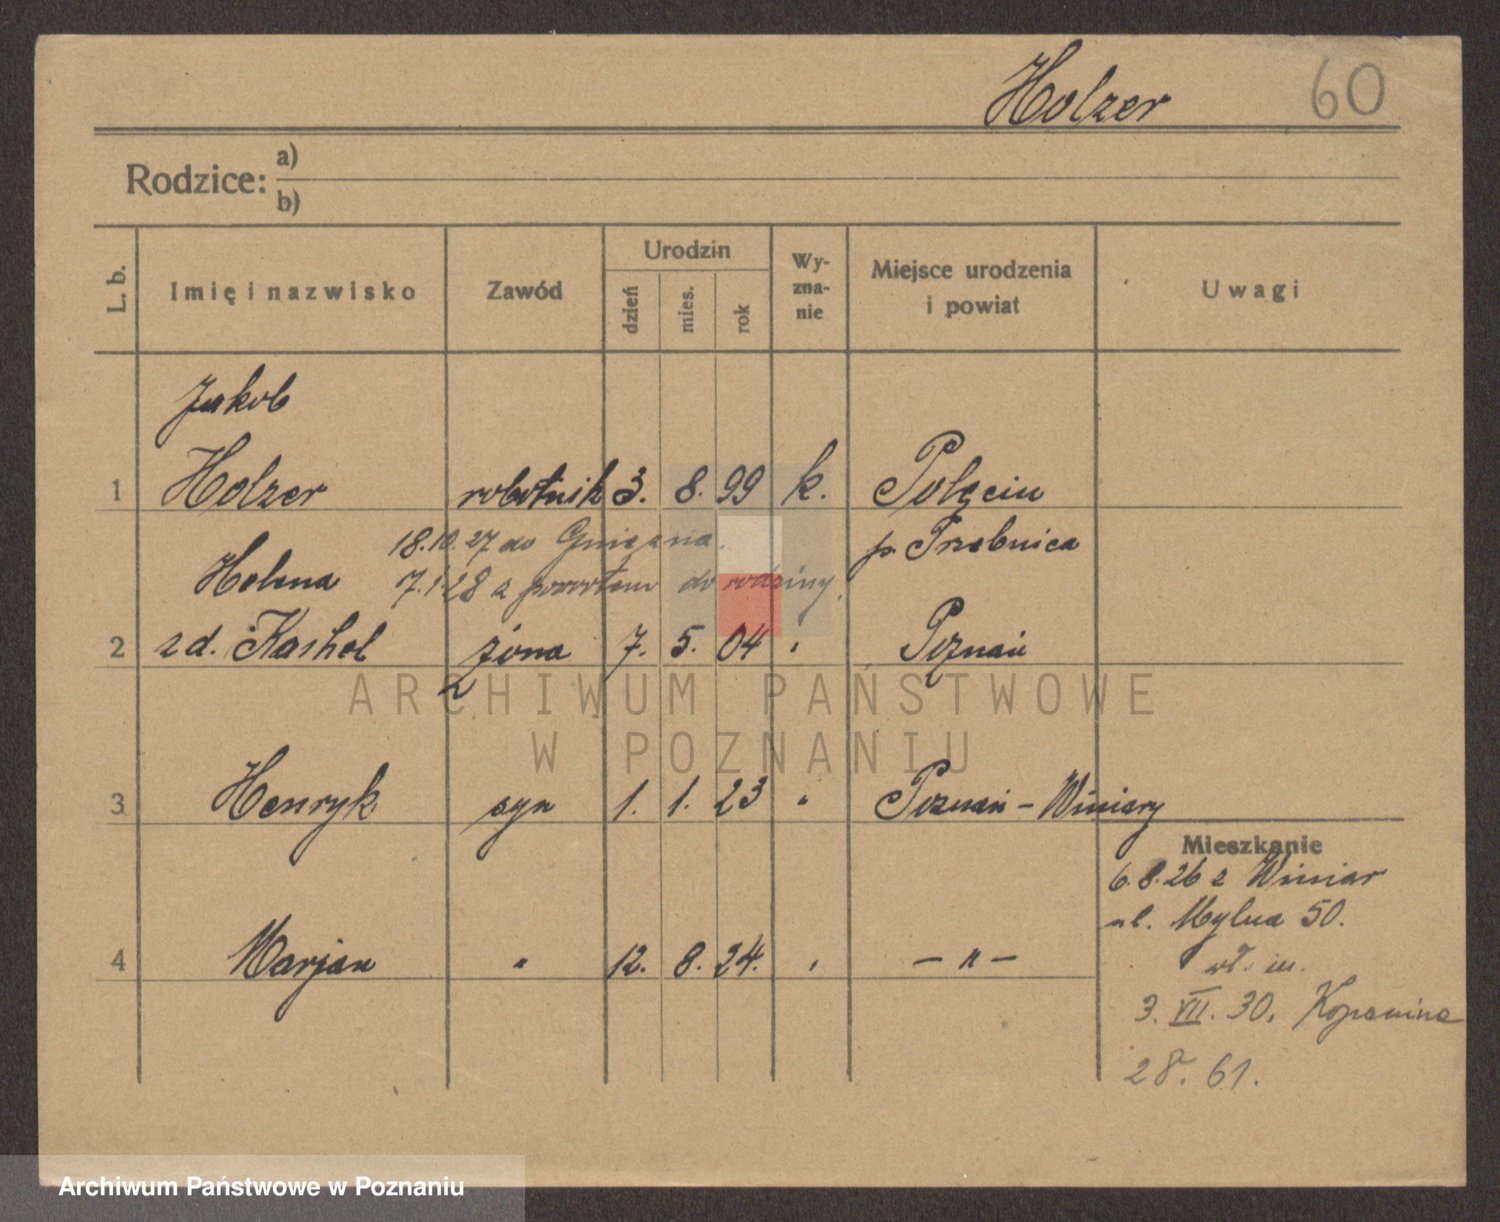 Holzer 60
Rodzice: a)
b)
L. b.
Imię i nazwisko
Zawód
Urodzin
dzień
mies.
rok
Wy-
zna-
nie
Miejsce urodzenia
i powiat
Uwagi
Jakob
1 Holzer robotnik 3. 8. 99 k.
p. Trzebnica
18.10.27 do Gniezna.
Helena 7.1.28 z powrotem do rodziny.
2 zd. żona 7. 5. 04 " Poznań
3 Henryk syn 1. 1. 23 " Poznań - Winiary
Mieszkanie
6.8.26 z Winiar
ul. Mylna 50.
4 Marjan " 12. 8. 24. " - " -
wł. m.
3. VII. 30. Kopanina
28. 61.
ARCHIWUM PAŃSTWOWE
W POZNANIU
Archiwum Państwowe w Poznaniu